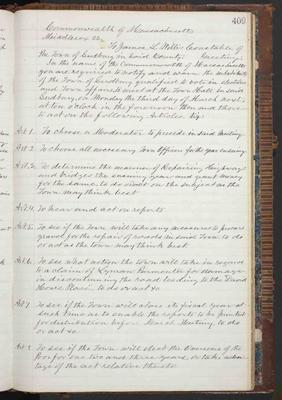 409
Commonwealth of Massachusetts
Middlesex ss.
To James L. Willis Constable of
the Town of Sudbury in said County. Greeting
In the name of the Commonwealth of Massachusetts
you are required to notify and warn the inhabitants
of the Town of Sudbury qualified to vote in elections
and Town affairs to meet at the Town Hall in said
Sudbury, on Monday the third day of March next,
at ten o'clock in the forenoon, then and there
to act on the following Articles viz
Art 1. To choose a Moderator to preside in said meeting.
Art 2. To choose all necessary Town Officers for the year ensuing.
Art 3. To determine the manner of Repairing Highways
and bridges the ensuing year and grant money
for the same, to do or act on the subject as the
Town may think best
Art 4. To hear and act on reports
Art 5. To see if the Town will take any measures to procure
gravel for the repair of roads in said Town to do
or act as the town may think best
Art 6. To see what action the town will take in regard
to a claim of Lyman for damage
in discontinuing the road leading to the David
Howe Place, to do or act &c
Art 7. To see if the Town will close its fiscal year at
such time as to enable the reports to be printed
for distribution before March Meeting, to do
or act &c
Art 8. To see if the Town will elect the Overseers of the
Poor for one two and three years, or take advan-
tage of the act relative thereto